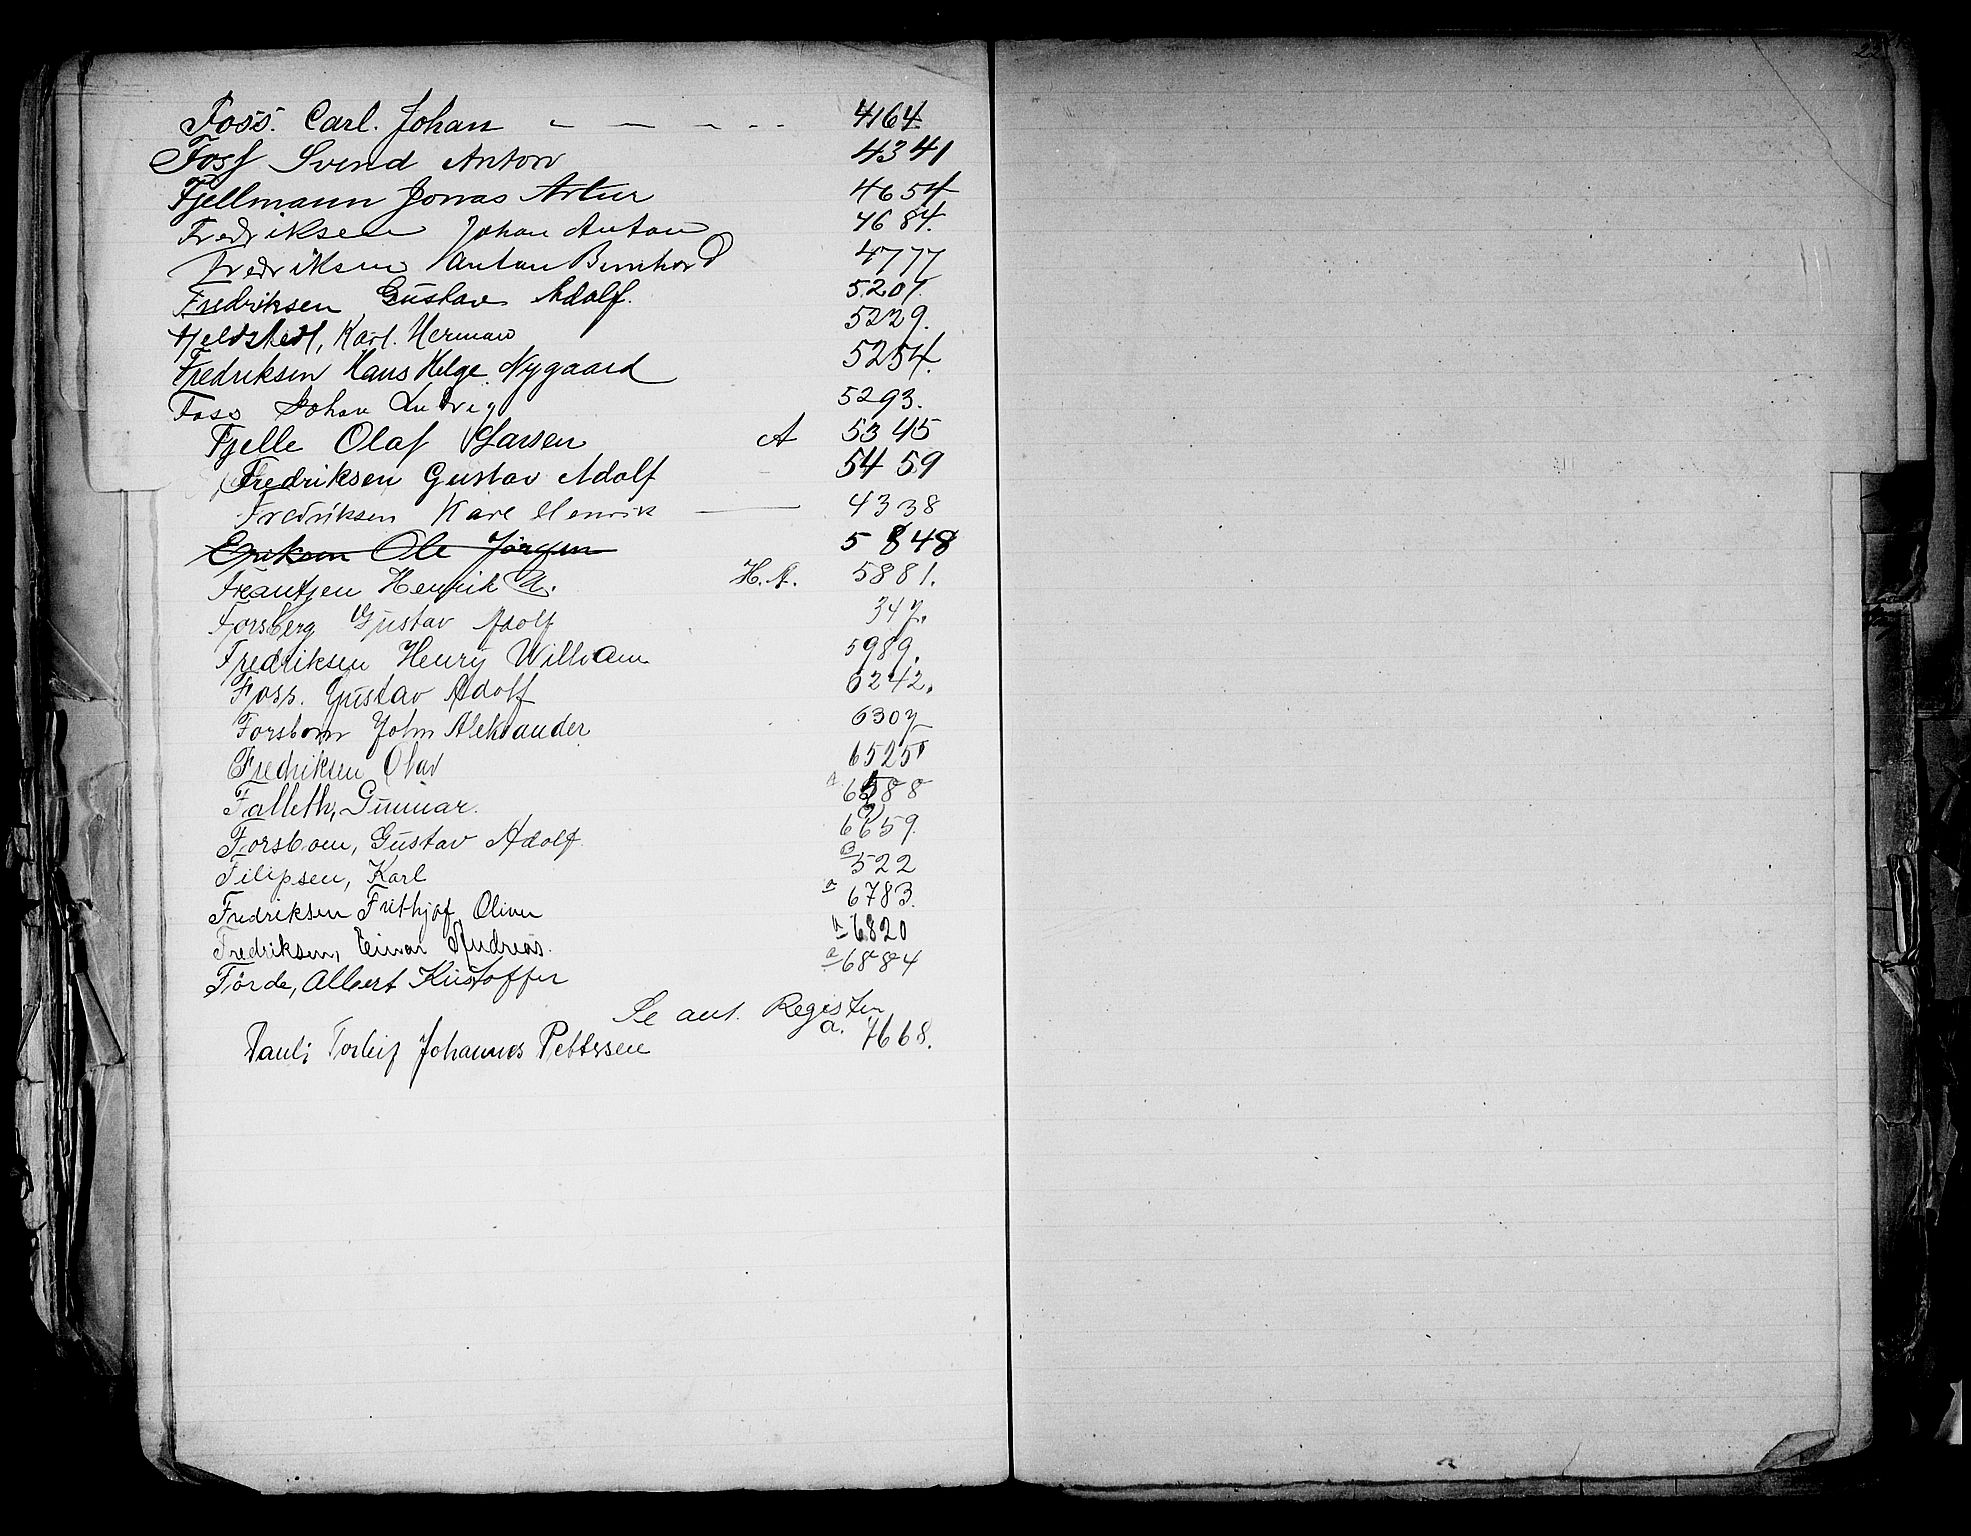 Foss. Carl. Johan 4164
Foss Svend Anton 4341
Fjellmann Jonas Artur 4654
Fredriksen Johan Anton 4684.
Fredriksen Anton Bernhard 4777
Fredriksen Gustav Adolf. 5201.
Karl. Herman 5229.
Fredriksen Hans Helge Nygaard 5254.
Foss Johan Ludvig 5293.
Fjelle Olaf Larsen A 5345
Fredriksen Gustav Adolf 5459
Fredriksen Karl Henrik 4338
Eriksen Ole Jørgen 5848
Frantzen Henrik H. A. 5881.
Forsberg Gustav Adolf 347.
Fredriksen Henry William 5989.
Foss. Gustav Adolf 6242.
Forsbom John Aleksander 6307
Fredriksen Olav 6525
Falleth, Gunnar. a
Forsbom, Gustav Adolf. 6659.
Filipsen, Karl 522
Fredriksen Frithjof Oliver a 6783.
Fredriksen, Einar Andreas. a 6820
Førde, Albert Kristoffer a 6884
Se ant. Register
Pauli Torleif Johannes Pettersen a. 7668.